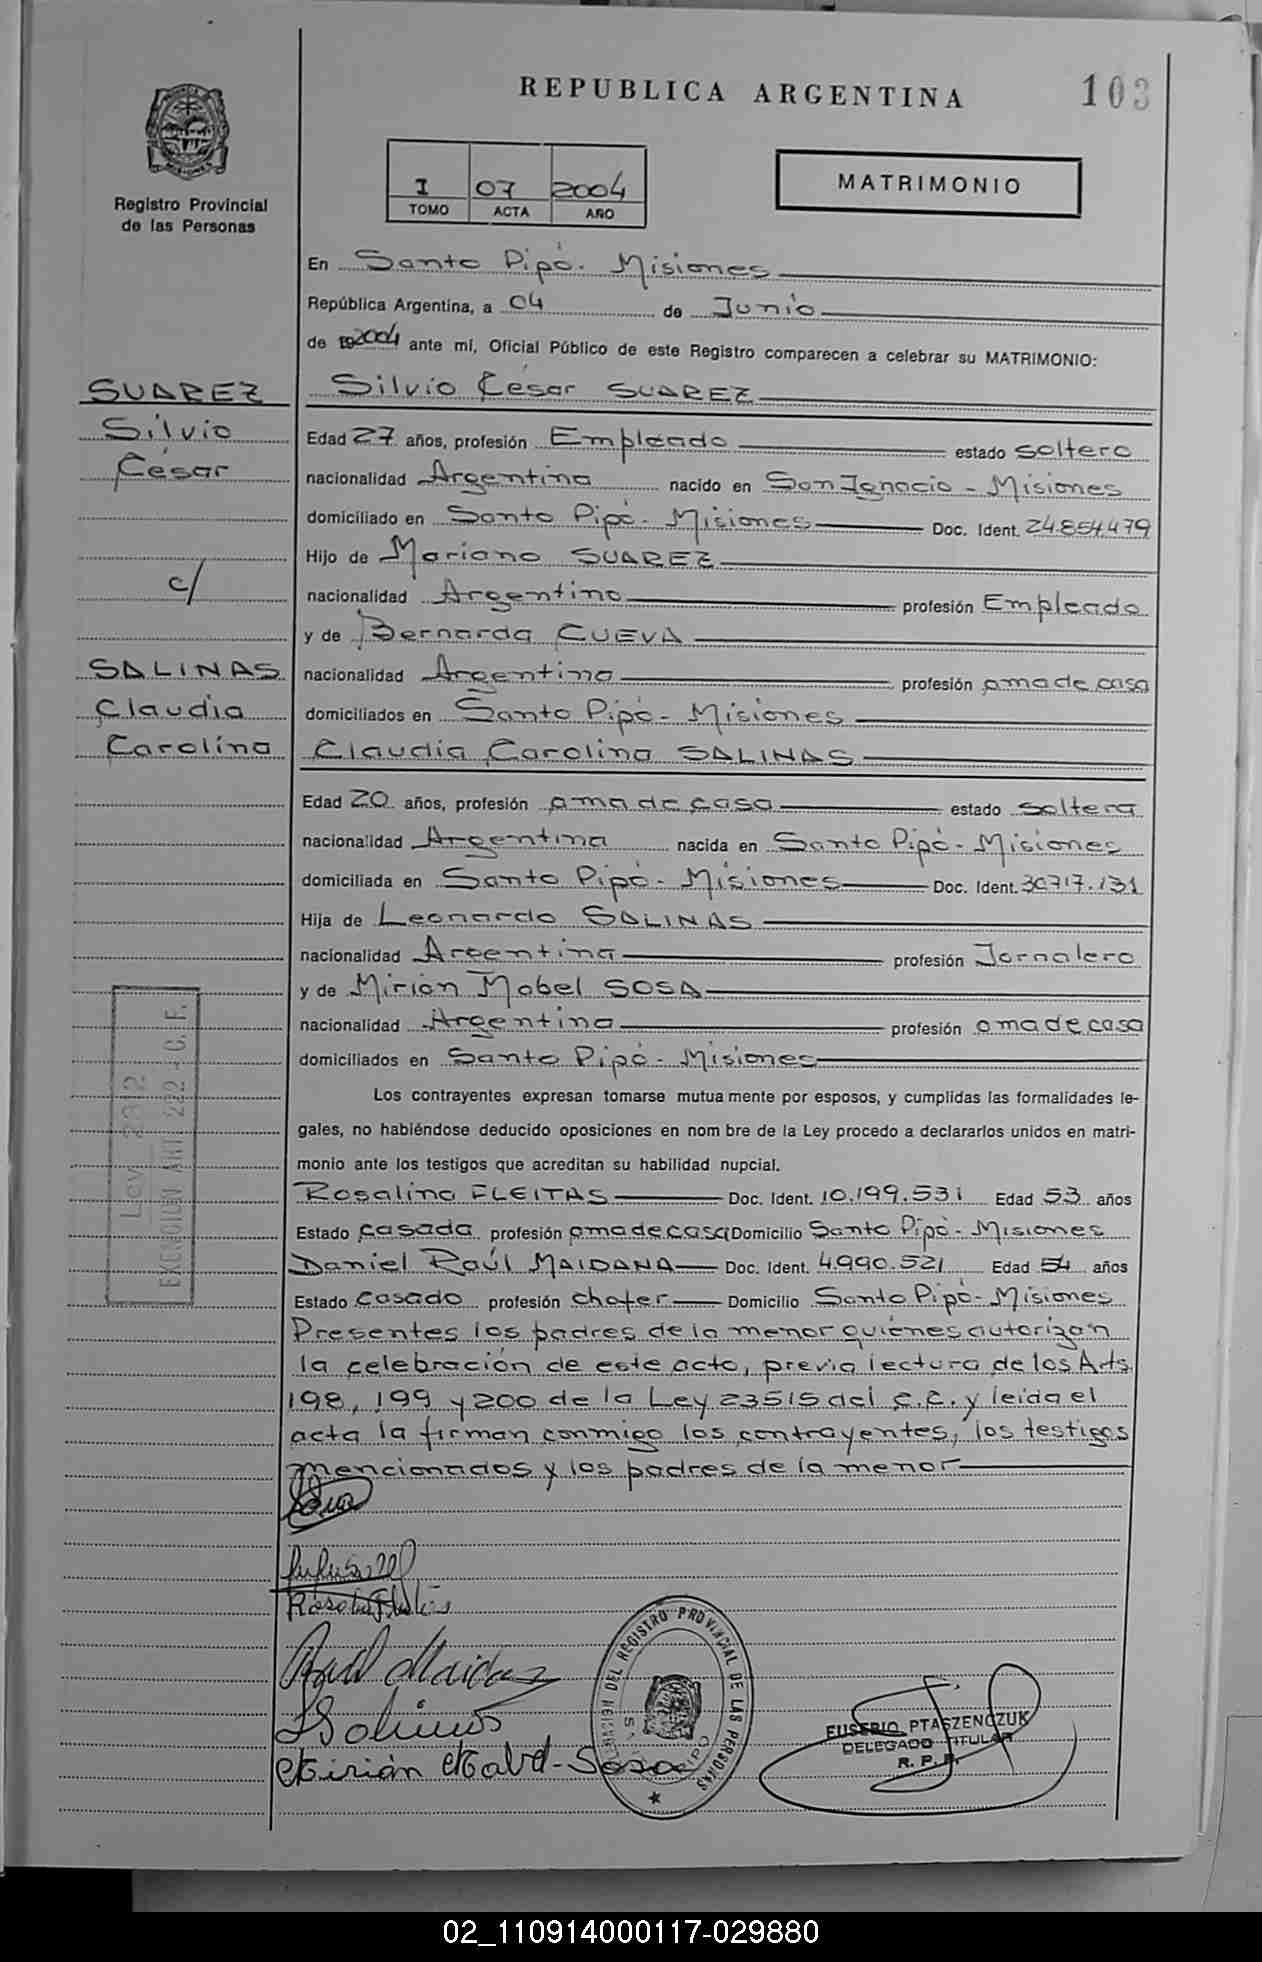 REPUBLICA ARGENTINA
103
Registro Provincial
de las Personas
I 07 2004
TOMO ACTA AÑO
MATRIMONIO
En Santo Pipó - Misiones
República Argentina, a 04 de Junio
de 2004 ante mí, Oficial Público de este Registro comparecen a celebrar su MATRIMONIO:
SUAREZ
Silvio
César
c/
SALINAS
Claudia
Carolina
Silvio César SUAREZ
Edad 27 años, profesión Empleado estado soltero
nacionalidad Argentina nacido en San Ignacio - Misiones
domiciliado en Santo Pipó - Misiones Doc. Ident. 24.854.479
Hijo de Mariano SUAREZ
nacionalidad Argentino profesión Empleado
y de Bernarda CUEVA
nacionalidad Argentina profesión ama de casa
domiciliados en Santo Pipó - Misiones
Claudia Carolina SALINAS
Edad 20 años, profesión ama de casa estado soltera
nacionalidad Argentina nacida en Santo Pipó - Misiones
domiciliada en Santo Pipó - Misiones Doc. Ident. 30.717.131
Hija de Leonardo SALINAS
nacionalidad Argentina profesión Jornalero
y de Mirián Mabel SOSA
nacionalidad Argentina profesión ama de casa
domiciliados en Santo Pipó - Misiones
Los contrayentes expresan tomarse mutuamente por esposos, y cumplidas las formalidades le-
gales, no habiéndose deducido oposiciones en nombre de la Ley procedo a declararlos unidos en matri-
monio ante los testigos que acreditan su habilidad nupcial.
Rosalina FLEITAS Doc. Ident. 10.199.531 Edad 53 años
Estado casada profesión ama de casa Domicilio Santo Pipó - Misiones
Daniel Raúl MAIDANA Doc. Ident. 4.990.521 Edad 54 años
Estado casado profesión chofer Domicilio Santo Pipó - Misiones
Presentes los padres de la menor quiénes autorizan
la celebración de este acto, previa lectura de los Arts
198, 199 y 200 de la Ley 23515 del C.C. y leída el
acta la firman conmigo los contrayentes, los testigos
mencionados y los padres de la menor
EXENCION ART. 222 - C. F.
Raúl Maidana
LSalinas
Mirián Mabel Sosa
REGISTRO PROVINCIAL DE LAS PERSONAS
EUSEBIO PTASZENCZUK
DELEGADO TITULAR
R. P. P.
02_110914000117-029880